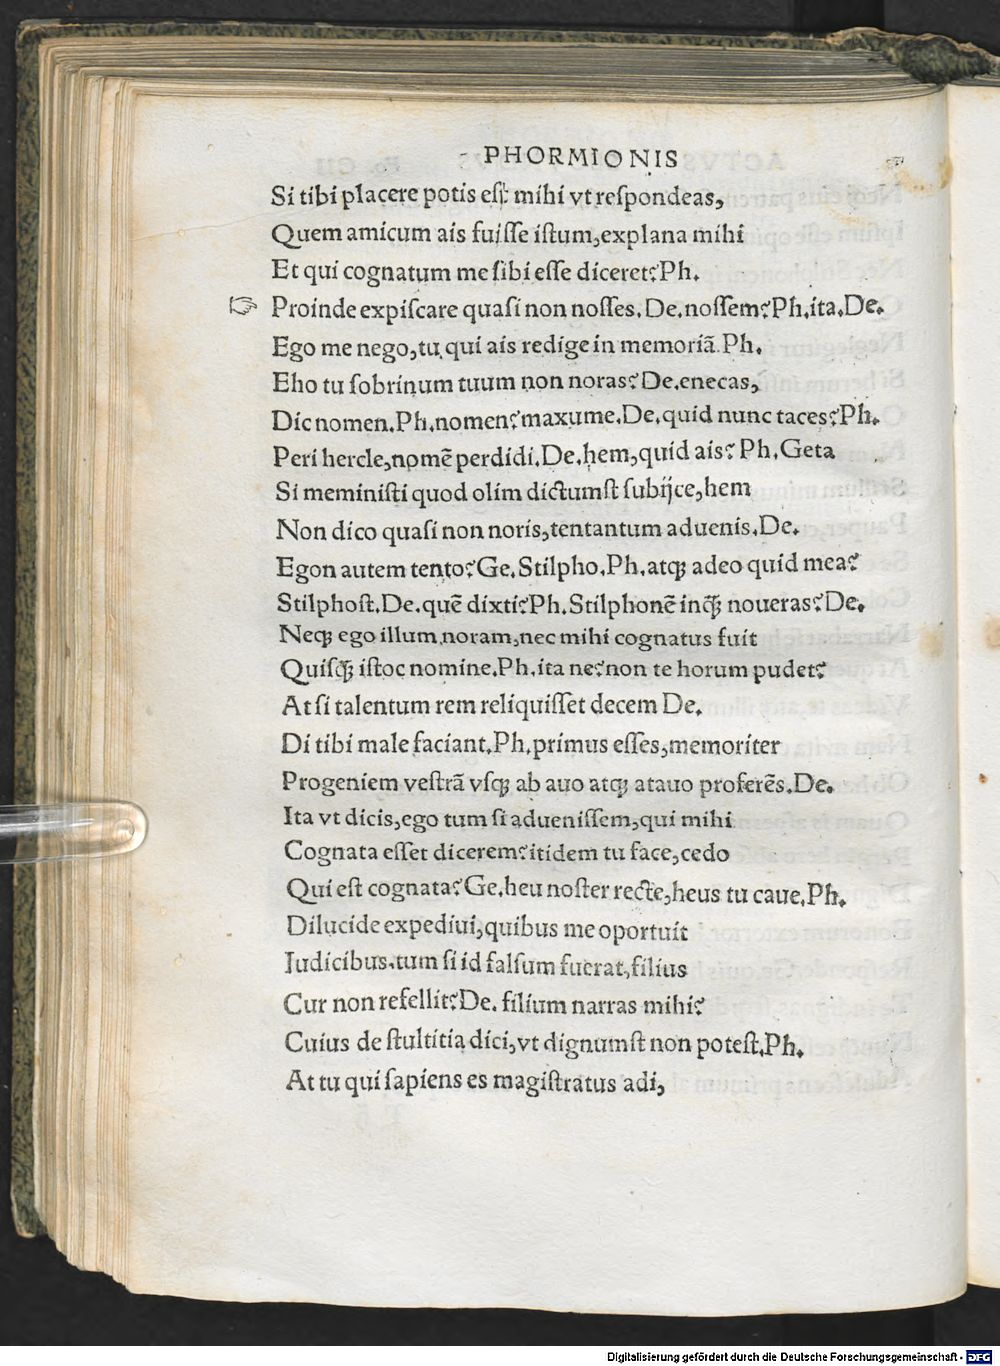 PHORMIONIS
Si tibi placere potis est mihi vt respondeas,
Quem amicum ais fuisse istum, explana mihi
Et qui cognatum me sibi esse diceret? Ph.
☞ Proinde expiscare quasi non nosses. De. nossem? Ph. ita. De.
Ego me nego, tu qui ais redige in memoriã Ph.
Eho tu sobrinum tuum non noras? De. enecas,
Dic nomen. Ph. nomen? maxume. De. quid nunc taces? Ph.
Peri hercle, nomẽ perdidi. De. hem, quid ais? Ph. Geta
Si meministi quod olim dictumst subijce, hem
Non dico quasi non noris, tentantum aduenis. De.
Egon autem tento? Ge. Stilpho. Ph. atq; adeo quid mea?
Stilphost. De. quẽ dixti? Ph. Stilphonẽ inq̃ noueras? De.
Neq; ego illum noram, nec mihi cognatus fuit
Quisq̃ istoc nomine. Ph. ita ne? non te horum pudet?
At si talentum rem reliquisset decem De.
Di tibi male faciant. Ph. primus esses, memoriter
Progeniem vestrã vsq; ab auo atq; atauo proferẽs. De.
Ita vt dicis, ego tum si aduenissem, qui mihi
Cognata esset dicerem? itidem tu face, cedo
Qui est cognata? Ge. heu noster recte, heus tu caue. Ph.
Dilucide expediui, quibus me oportuit
Iudicibus. tum si id falsum fuerat, filius
Cur non refellit? De. filium narras mihi?
Cuius de stultitia dici, vt dignumst non potest. Ph.
At tu qui sapiens es magistratus adi,
Digitalisierung gefördert durch die Deutsche Forschungsgemeinschaft - DFG